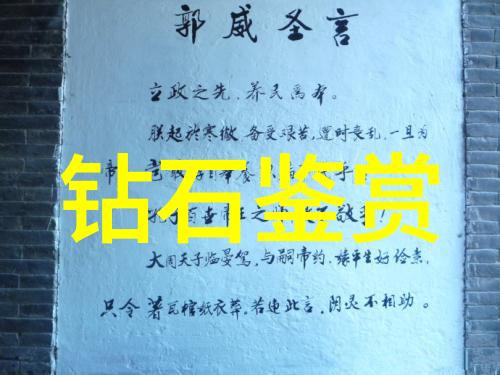 郭威圣言
立政之先，养民为本。
朕起於寒微，备受艰苦，遭时丧乱，一旦为
帝
钻石鉴赏
大周天子临晏驾，与嗣帝约，缘平生好俭素，
只令著瓦棺纸衣葬。若违此言，阴灵不相助。